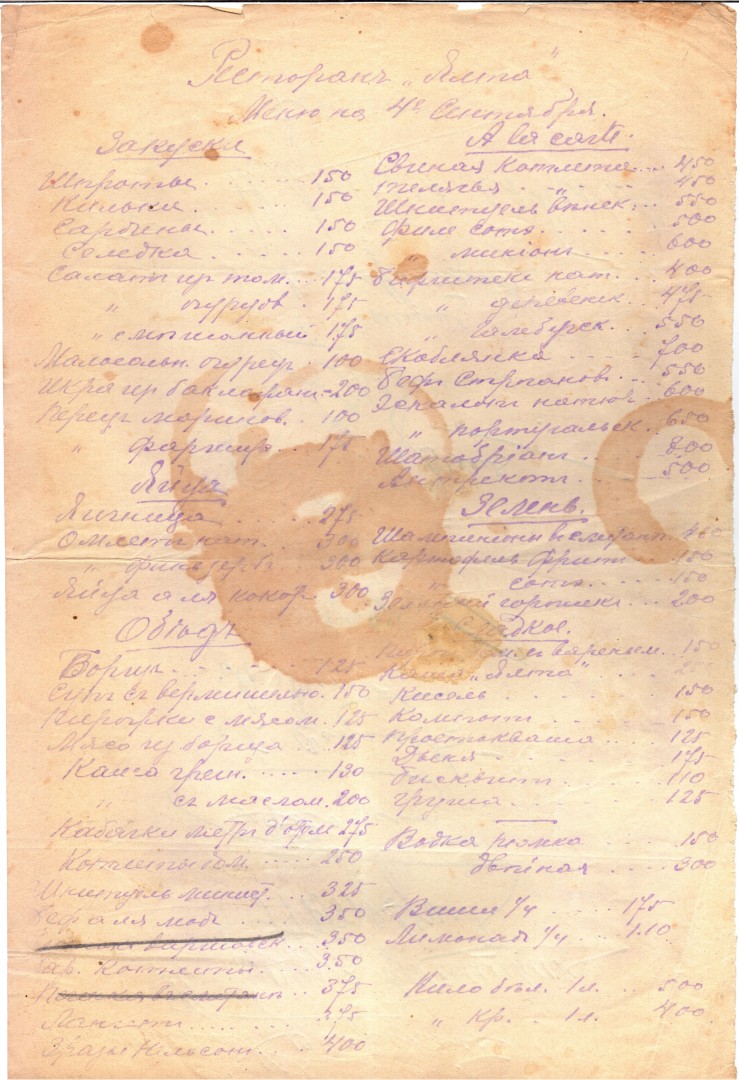 Ресторанъ „Ялта"
Меню на 4е Сентября.
Закуски
Шпроты 150
Кильки 150
Сардины 150
Селедка 150
Салат из том. 175
„ огурцов 175
„ смешонный 175
Малосольн. огурец 100
Икра из баклажан 200
Перец маринов. 100
„ фаршир. 175
Яйца
Яичница 275
Омлетъ нат. 300
„ 300
Яйца а ля кокор 300
Обѣдъ
Борщъ 125
Супъ съ вермишелью. 150
Пирожки с мясом. 125
Мясо из борща 125
Каша греч. 130
„ съ маслом. 200
Кабачки метр д'отель 275
Котлеты пом. 250
Шницель минист. 325
Беф а ля модъ 350
350
Котлеты 350
375
375
Зразы Нельсонъ 400
A la carte.
Свиная Котлета 450
телячья „ 450
Шницель Вннск. 550
Филе сотэ 500
„ миньонъ 600
Бифштекс нат. 400
„ деревенск. 475
„ Гамбургск. 550
Скоблянка 700
Беф Строганов 550
Эскалопъ натюр. 600
„ португальск. 650
Шатобріанъ 800
Антрекотъ 500
Зелень.
Шампиньоны в сметан. 400
Картофель Фрит 150
„ сотэ 150
Зеленый горошекъ 200
Сладкое.
вареньем. 150
Каша „Ялта"
Кисель 150
Компотъ 150
Простокваша 125
Дыня 175
Бисквитъ 110
Груша 125
Водка рюмка 150
двойная 300
Вишня 1/4 175
Лимонадъ 1/4 110
Вино бѣл. 1 л. 500
„ Кр. 1 л. 400